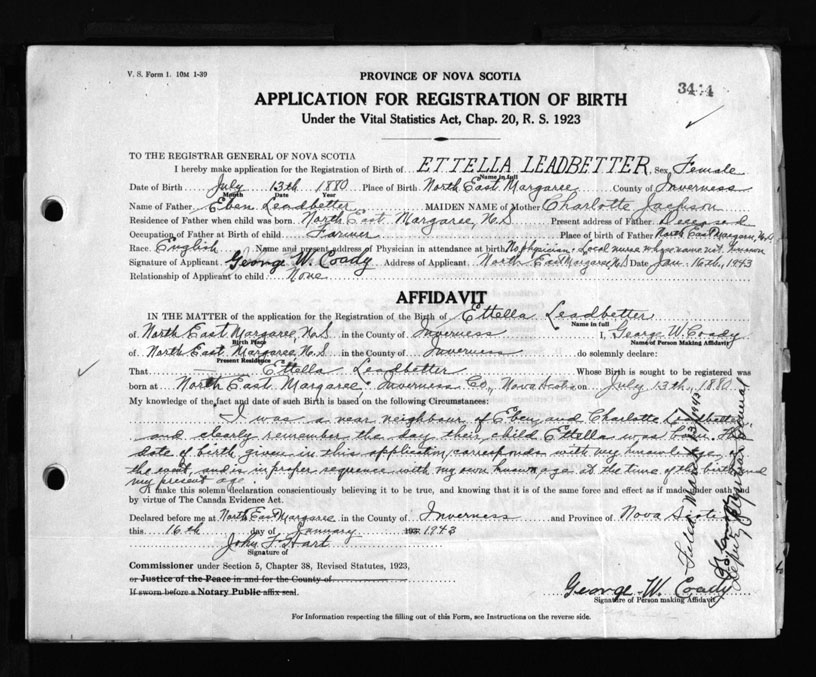 V. S. Form 1. 10M 1-39
PROVINCE OF NOVA SCOTIA
APPLICATION FOR REGISTRATION OF BIRTH
Under the Vital Statistics Act, Chap. 20, R. S. 1923
TO THE REGISTRAR GENERAL OF NOVA SCOTIA
I hereby make application for the Registration of Birth of ETTELLA LEADBETTER Sex Female
Name in full
Date of Birth July 13th 1880 Place of Birth North East Margaree County of Inverness
Month Date Year
Name of Father Eben Leadbetter MAIDEN NAME of Mother Charlotte Jackson
Residence of Father when child was born North East Margaree, N.S Present address of Father Deceased
Occupation of Father at Birth of child Farmer Place of birth of Father North East Margaree, N.S
Race English Name and present address of Physician in attendance at birth No physician. Local nurse whose name not known
Signature of Applicant George W. Coady Address of Applicant North East Margaree, N.S Date Jan. 16th, 1943
Relationship of Applicant to child None
AFFIDAVIT
IN THE MATTER of the application for the Registration of the Birth of Ettella Leadbetter
Name in full
of North East Margaree, N.S in the County of Inverness I, George W. Coady
Birth Place Name of Person Making Affidavit
of North East Margaree, N.S in the County of Inverness do solemnly declare:
Present Residence
That Ettella Leadbetter Whose Birth is sought to be registered was
born at North East Margaree, Inverness Co., Nova Scotia on July 13th, 1880
My knowledge of the fact and date of such Birth is based on the following Circumstances:
I was a near neighbour of Eben and Charlotte Leadbetter,
and clearly remember the day their child Ettella was born. The
date of birth given in this application corresponds with my knowledge of
the event, and is in proper sequence with my own known age at the time of the birth and
my present age.
I make this solemn declaration conscientiously believing it to be true, and knowing that it is of the same force and effect as if made under oath and
by virtue of The Canada Evidence Act.
Declared before me at North East Margaree in the County of Inverness and Province of Nova Scotia
this 16th day of January 1943
John F. Hart
Signature of
Commissioner under Section 5, Chapter 38, Revised Statutes, 1923,
or Justice of the Peace in and for the County of
If sworn before a Notary Public affix seal.
George W. Coady
Signature of Person making Affidavit
For Information respecting the filling out of this Form, see Instructions on the reverse side.
Deputy Registrar General